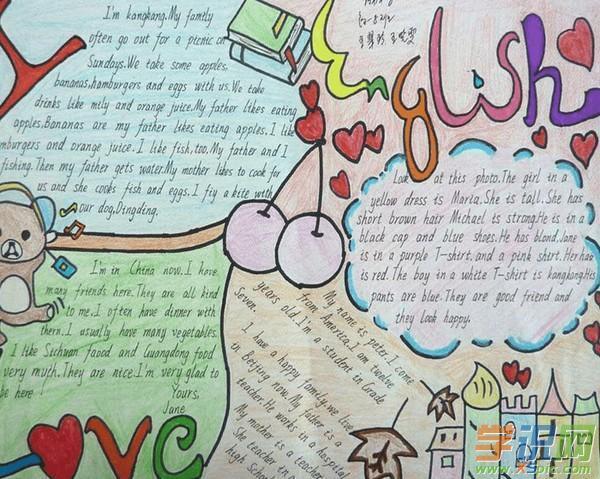 I'm kangkang.My family
often go out for a picnic on
Sundays.We take some apples,
bananas,hamburgers and eggs with us.We take
drinks like mily and orange juice.My father likes eating
apples.Bananas are my father likes eating apples.I like
mburgers and orange juice. I like fish,too.My father and I
fishing.Then my father gets water.My mother likes to cook for
us and she cooks fish and eggs.I fiy a kite with
our dog,Dingding.
English
Look at this photo.The girl in a
yellow dress is Maria.She is tall.She has
short brown hair Michael is strong.He is in a
black cap and blue shoes.He has blond.Jane
is in a purple T-shirt.and a pink shirt.Her hair
is red.The boy in a white T-shirt is kangkang.His
pants are blue.They are good friend and
they look happy.
I'm in China now.I have
many friends here.They are all kind
to me.I often have dinner with
them.I usually have many vegetables.
I like Sichuan faood and Guangdong food
very myth.They are nice.I'm very glad to
be here !
Yours,
Jane
My name is peter.I come
from America.I am twelve
years old.I'm a student in Grade
Seven.
I have a happy family.we live
in Beijing now.My father is a
teacher.He works in a hospital
My mother is a teacher
She teacher in a
high School
OVE
学识网
www.xspic.com